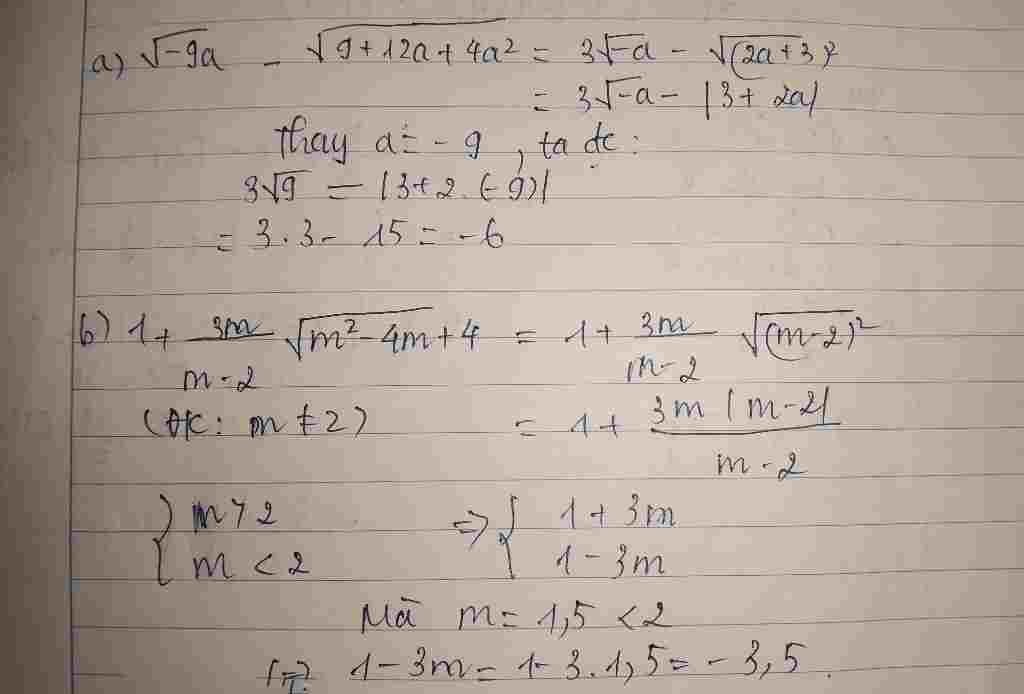 a) √-9a - √9+12a+4a² = 3√-a - √(2a+3)²
= 3√-a - |3+2a|
Thay a = -9, ta đc:
3√9 - |3+2.(-9)|
= 3.3 - 15 = -6
b) 1 + 3m/m-2 √m²-4m+4 = 1 + 3m/m-2 √(m-2)²
(ĐK: m ≠ 2) = 1 + 3m|m-2|/m-2
{ m > 2 => { 1+3m
m < 2 1-3m
Mà m = 1,5 < 2
=> 1-3m = 1-3.1,5 = -3,5.